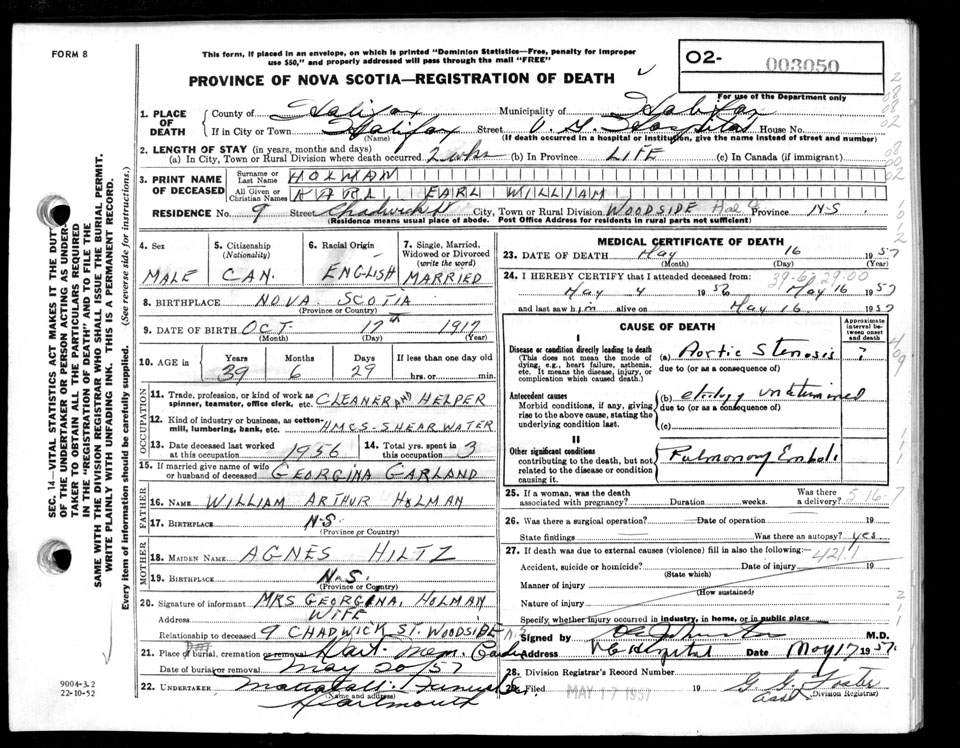 FORM 8
This form, if placed in an envelope, on which is printed "Dominion Statistics—Free, penalty for improper
use $50," and properly addressed will pass through the mail "FREE"
PROVINCE OF NOVA SCOTIA—REGISTRATION OF DEATH
O2- 003050
For use of the Department only
1. PLACE OF DEATH
County of Halifax Municipality of Halifax
If in City or Town Halifax Street Hospital House No.
(Name) (If death occurred in a hospital or institution, give the name instead of street and number)
2. LENGTH OF STAY (in years, months and days)
(a) In City, Town or Rural Division where death occurred 2 wks (b) In Province LIFE (c) In Canada (if immigrant)
3. PRINT NAME OF DECEASED
Surname or Last Name HOLMAN
All Given or Christian Names KARL EARL WILLIAM
RESIDENCE No. 9 Street Chadwick St City, Town or Rural Division WOODSIDE Province N.S.
(Residence means usual place of abode. Post Office Address for residents in rural parts not sufficient)
4. Sex
MALE
5. Citizenship
(Nationality)
CAN.
6. Racial Origin
ENGLISH
7. Single, Married,
Widowed or Divorced
(write the word)
MARRIED
8. BIRTHPLACE NOVA SCOTIA
(Province or Country)
9. DATE OF BIRTH OCT. 17th 1917
(Month) (Day) (Year)
10. AGE in
Years Months Days If less than one day old
39 6 29 hrs. or min.
OCCUPATION
11. Trade, profession, or kind of work as
spinner, teamster, office clerk, etc. CLEANER AND HELPER
12. Kind of industry or business, as cotton-
mill, lumbering, bank, etc. HMCS-SHEARWATER
13. Date deceased last worked
at this occupation 1956
14. Total yrs. spent in
this occupation 3
15. If married give name of wife
or husband of deceased GEORGINA GARLAND
FATHER
16. NAME WILLIAM ARTHUR HOLMAN
17. BIRTHPLACE N.S.
(Province or Country)
MOTHER
18. MAIDEN NAME AGNES HILTZ
19. BIRTHPLACE N.S.
(Province or Country)
20. Signature of informant MRS GEORGINA. HOLMAN
Address WIFE
Relationship to deceased 9 CHADWICK ST. WOODSIDE N.S
21. Place of burial, cremation or removal Dart. Mem. Gardens
Date of burial or removal May 20/57
22. UNDERTAKER
(Name and address)
Dartmouth
MEDICAL CERTIFICATE OF DEATH
23. DATE OF DEATH May 16 1957
(Month) (Day) (Year)
24. I HEREBY CERTIFY that I attended deceased from:
39-6-29.00
May 4 1956 to May 16 1957
and last saw him alive on May 16 1957
CAUSE OF DEATH
Approximate
interval be-
tween onset
and death
I
Disease or condition directly leading to death
(This does not mean the mode of
dying, e.g., heart failure, asthenia,
etc. It means the disease, injury, or
complication which caused death.)
(a) Aortic Stenosis ?
due to (or as a consequence of)
Antecedent causes
Morbid conditions, if any, giving
rise to the above cause, stating the
underlying condition last.
(b) etiology undetermined
due to (or as a consequence of)
(c)
II
Other significant conditions
contributing to the death, but not
related to the disease or condition
causing it.
Pulmonary Emboli
25. If a woman, was the death
associated with pregnancy? Duration weeks. Was there
a delivery?
516-7
26. Was there a surgical operation? Date of operation 19
State findings Was there an autopsy? yes
27. If death was due to external causes (violence) fill in also the following:—
421.1
Accident, suicide or homicide? Date of injury 19
(State which)
Manner of injury
(How sustained)
Nature of injury
Specify whether injury occurred in industry, in home, or in public place
Signed by M.D.
Address Hospital Date May 17 1957.
28. Division Registrar's Record No.
29. Filed MAY 17 1957 19 G. G. Foster
(Division Registrar)
SEC. 14—VITAL STATISTICS ACT MAKES IT THE DUTY
OF THE UNDERTAKER OR PERSON ACTING AS UNDER-
TAKER TO OBTAIN ALL THE PARTICULARS REQUIRED
IN THE "REGISTRATION OF DEATH" AND TO FILE THE
SAME WITH THE DIVISION REGISTRAR WHO SHALL ISSUE THE BURIAL PERMIT.
WRITE PLAINLY WITH UNFADING INK. THIS IS A PERMANENT RECORD.
Every item of information should be carefully supplied. (See reverse side for instructions.)
9004-3.2
22-10-52